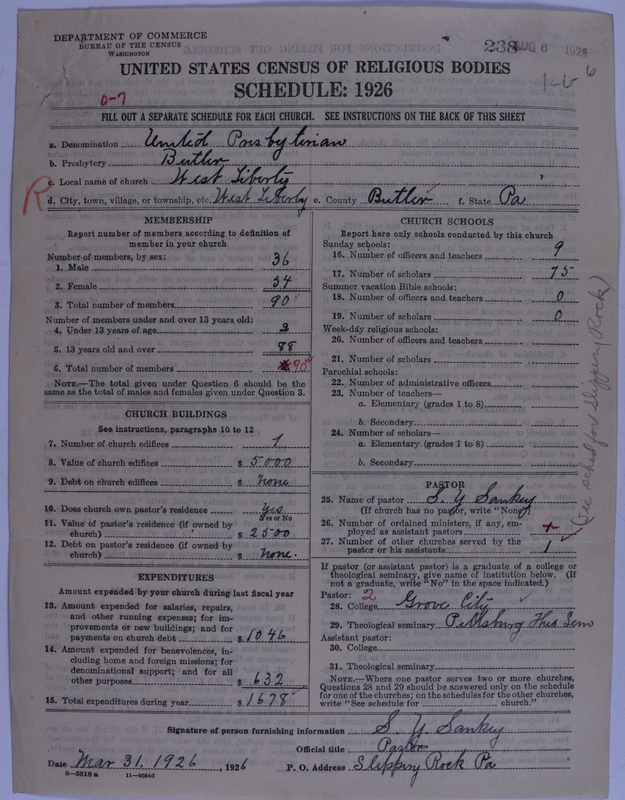 DEPARTMENT OF COMMERCE
BUREAU OF THE CENSUS
WASHINGTON
238 AUG 6 1926
UNITED STATES CENSUS OF RELIGIOUS BODIES
SCHEDULE: 1926
0-7
FILL OUT A SEPARATE SCHEDULE FOR EACH CHURCH. SEE INSTRUCTIONS ON THE BACK OF THIS SHEET
a. Denomination United Presbyterian
b. Presbytery Butler
c. Local name of church West Liberty
R
d. City, town, village, or township, etc. West Liberty e. County Butler f. State Pa
MEMBERSHIP
Report number of members according to definition of
member in your church
Number of members, by sex:
1. Male 36
2. Female 54
3. Total number of members 90
Number of members under and over 13 years old:
4. Under 13 years of age
5. 13 years old and over 88
6. Total number of members 90
NOTE.—The total given under Question 6 should be the
same as the total of males and females given under Question 3.
CHURCH BUILDINGS
See instructions, paragraphs 10 to 12
7. Number of church edifices 1
8. Value of church edifices $ 5000
9. Debt on church edifices $ None
10. Does church own pastor's residence Yes
Yes or No
11. Value of pastor's residence (if owned by
church) $ 2500
12. Debt on pastor's residence (if owned by
church) $ None.
EXPENDITURES
Amount expended by your church during last fiscal year
13. Amount expended for salaries, repairs,
and other running expenses; for im-
provements or new buildings; and for
payments on church debt $ 1046
14. Amount expended for benevolences, in-
cluding home and foreign missions; for
denominational support; and for all
other purposes $ 632
15. Total expenditures during year $ 1678
CHURCH SCHOOLS
Report here only schools conducted by this church
Sunday schools:
16. Number of officers and teachers 9
17. Number of scholars 75
Summer vacation Bible schools:
18. Number of officers and teachers 0
19. Number of scholars 0
Week-day religious schools:
20. Number of officers and teachers
21. Number of scholars
Parochial schools:
22. Number of administrative officers
23. Number of teachers—
a. Elementary (grades 1 to 8)
b. Secondary
24. Number of scholars—
a. Elementary (grades 1 to 8)
b. Secondary
PASTOR
25. Name of pastor S. Y Sankey
(If church has no pastor, write "None")
26. Number of ordained ministers, if any, em-
ployed as assistant pastors
27. Number of other churches served by the
pastor or his assistants 1
(See sched for Slippery Rock)
If pastor (or assistant pastor) is a graduate of a college or
theological seminary, give name of institution below. (If
not a graduate, write "No" in the space indicated.)
Pastor: 2
28. College Grove City
29. Theological seminary Pittsburg Theo Sem
Assistant pastor:
30. College
31. Theological seminary
NOTE.—Where one pastor serves two or more churches,
Questions 28 and 29 should be answered only on the schedule
for one of the churches; on the schedules for the other churches,
write "See schedule for church."
Signature of person furnishing information S. Y Sankey
Official title Pastor
Date Mar 31. 1926, 1926 P. O. Address Slippery Rock Pa
8-5518a